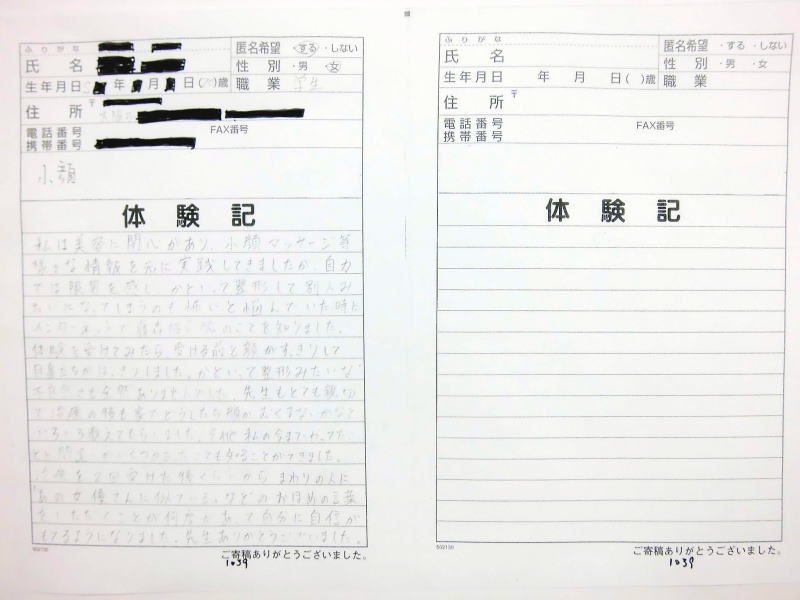 ふりがな
匿名希望 ・する ・しない
氏 名
性 別 ・男 ・女
生年月日 年 月 日( )歳
職 業 学生
住 所 〒
電話番号
FAX番号
携帯番号
小顔
体 験 記
私は美容に関心があり、小顔マッサージ等
様々な情報を元に実践してきましたが、自力
では限界を感じ、かといって整形して別人み
たいになってしまうのも怖いと悩んでいた時に
インターネットで のことを知りました。
体験を受けてみたら、受ける前と顔がすっきりして
目鼻立ちがはっきりしました。かといって整形みたいな
不自然さも全然ありませんでした。先生もとても親切
で治療の後も家でどうしたら顔がむくまないかなど
いろいろ教えてもらいました。 私の今までやってた
ことも知ることができました。
受けた後くらいから まわりの人に
あの女優さんに似ている。などのおほめの言葉
をいただくことが何度かあって自分に自信が
もてるようになりました。先生ありがとうございました。
502130
ご寄稿ありがとうございました。
1039
ふりがな
匿名希望 ・する ・しない
氏 名
性 別 ・男 ・女
生年月日 年 月 日( )歳
職 業
住 所 〒
電話番号
FAX番号
携帯番号
体 験 記
502130
ご寄稿ありがとうございました。
1039